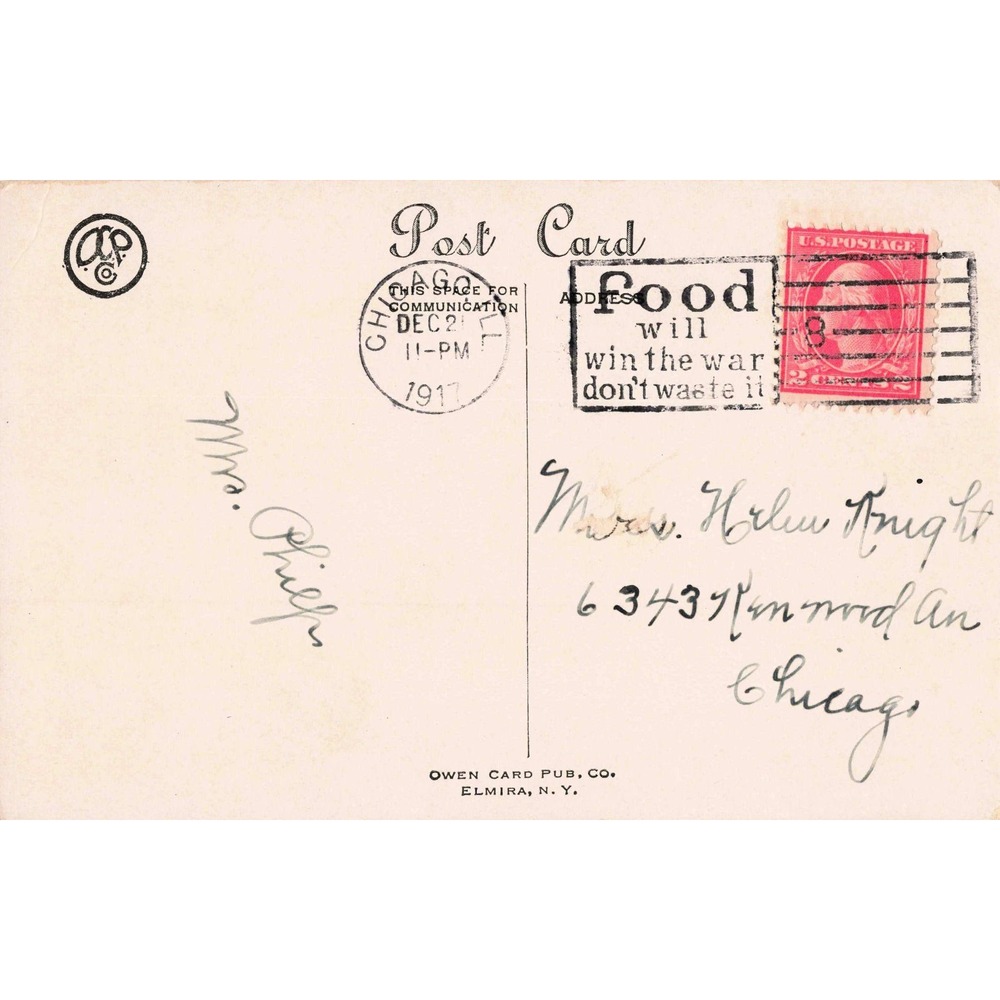 Post Card
THIS SPACE FOR
COMMUNICATION
ADDRESS
CHICAGO, ILL.
DEC 21
11-PM
1917
food
will
win the war
don't waste it
U.S. POSTAGE
8
2 CENTS 2
Mrs.
Phielps
Mrs. Helen Knight
6343 Kenwood Av
Chicago
OWEN CARD PUB. CO.
ELMIRA, N. Y.